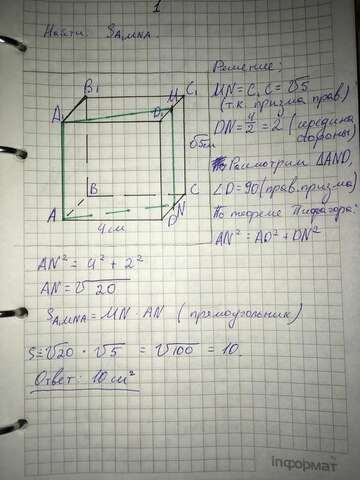 1
Найти: SA₁MNA.
B₁
C₁
M
A₁
D₁
√5см
B
C
A
N
D
4см
Решение:
MN = C₁C = √5
(т.к. призма прав)
DN = 4/2 = 2 (середина
стороны)
Расмотрим ΔAND,
∠D = 90 (прав.призма)
По теореме Пифагора:
AN² = AD² + DN²
AN² = 4² + 2²
AN = √20
SA₁MNA = MN · AN (прямоугольник)
S = √20 · √5 = √100 = 10.
Ответ: 10 см²
інформат